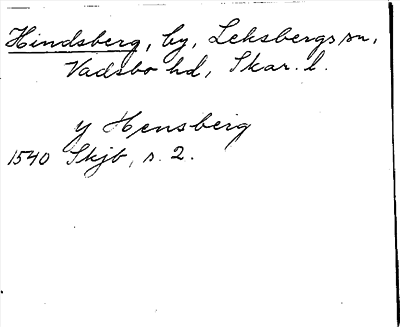 Hindsberg, by, Leksbergs sn,
Vadsbo hd, Skar. l.
y Hensberg
1540 Skjb, s. 2.